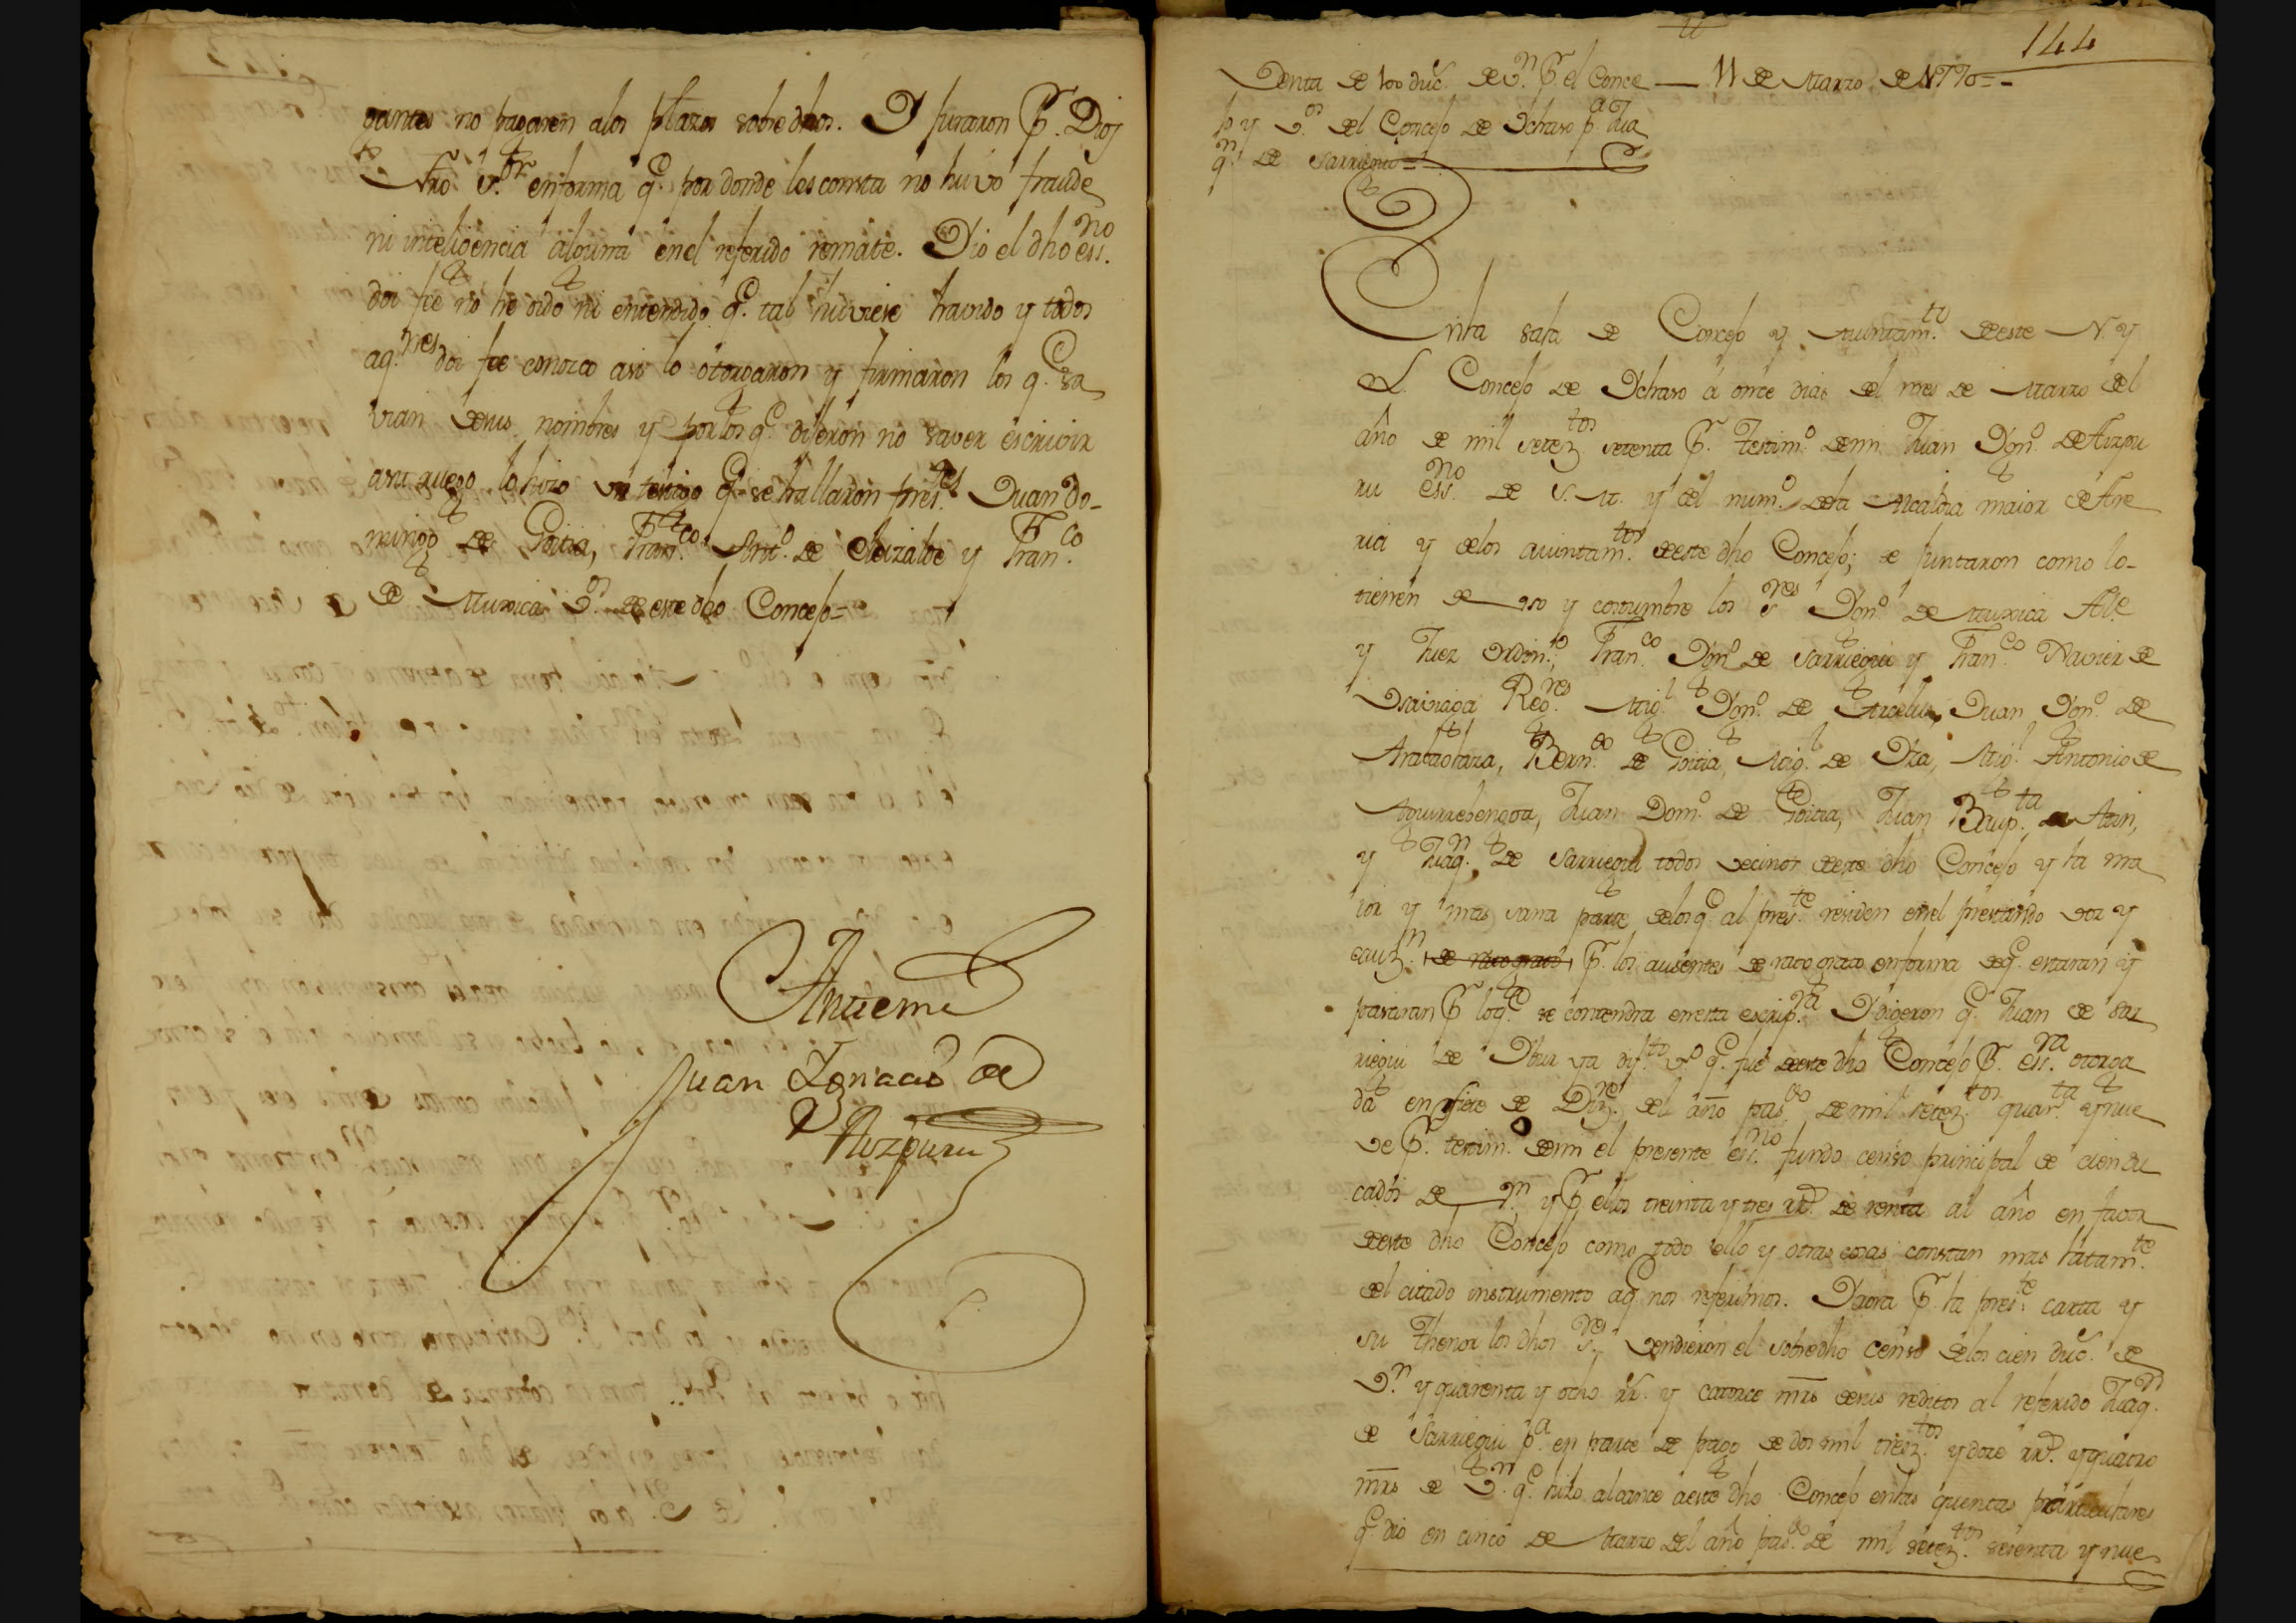 gantes no pagaren alos plazos sobredhos. Y juraron P.r Dios
Nro S.or enforma q.e por donde les consta no huvo fraude
ni inteligencia alguna en el referido remate. Yo el dho ess.no
doi fee no he oido ni entendido q.e tal huviere havido y todos
aq.nes doi fee conozco assi lo otorgaron y firmaron los q.e sa
vian de sus nombres y por los q.e dijeron no saver escrivir
a su ruego lo hizo un testigo q.e se hallaron pres.tes Juan Do-
mingo de Goitia, Fran.co Ant.o de Eleizalde y Fran.co
de Muxica V.os de este dho Concejo=
Ante mi
Juan Ignacio de
Aizpuru
144
Venta de 100 duc.s de V.n P.r el Conce — 11 de Marzo de 1770=-
jo y V.os del Concejo de Ichaso p.a Jua
q.n de Sarriegui=
En la sala de Concejo y Aiuntam.to de este N. y
L. Concejo de Ychaso á once dias del mes de Marzo del
año de mil setez.tos setenta P.r Testim.o de mi Juan Ygn.o de Aizpu
ru ess.no de S. M. y del num.o de la Alcaldia maior de Are
ria y de los aiuntam.tos de este dho Concejo; se juntaron como lo-
tienen de uso y costumbre los S.res Ygn.o de Muxica Al.e
y Juez Ordin.io, Fran.co Ygn.o de Sarriegui y Fran.co Xavier de
Usaviaga Reg.res Mig.l Ygn.o de Arcelus, Juan Ygn.o de
Aratáolaza, Bern.do de Goitia, Mig.l de Oza, Mig.l Antonio de
Aguirrebengoa, Juan Dom.o de Goitia, Juan Baup.ta de Ain,
y Juaq.n de Sarriegui todos vecinos de este dho Concejo y la ma
ior y mas sana parte de los q.e al pres.te residen en el prestando voz y
cauz.n de rato grato P.r los ausentes de rato grato enforma de q.e estaran y
pasaran P.r lo q.e se contendra en esta escrip.ra Y digeron q.e Juan de Sar
riegui de Ybur ya dif.to v.o q.e fue de este dho Concejo P.r ess.ra otorga
da en siete de Diz.re del año pas.do de mil setez.tos quar.ta y nue
ve P.r testim.o de mi el presente ess.no fundo censo principal de cien du
cados de V.n y P.r ellos treinta y tres rr.s de renta al año en favor
de este dho Concejo como todo ello y otras cosas constan mas latam.te
del citado instrumento a q.e nos referimos. Y aora P.r la pres.te carta y
su Thenor los dhos S.res vendieron el sobredho censo de los cien duc.s de
V.n y quarenta y ocho rr.s y catorce mrs de sus reditos al referido Juaq.n
de Sarriegui p.a en parte de pago de dos mil trez.tos y doze rr.s y quatro
mrs de V.n q.e hizo alcance a este dho Concejo en las quentas particulares
q.e dio en cinco de Marzo del año pas.do de mil setez.tos sesenta y nue